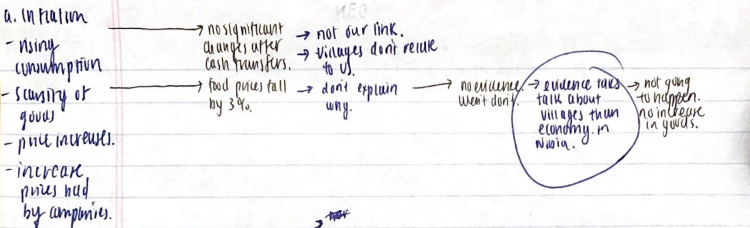 NEG
a. Inflation
- rising
consumption
- scarcity of
goods
- price increases.
- increase
prices had
by companies.
no significant
changes after
cash transfers.
not our link.
villages don't relate
to us.
food prices fall
by 3%.
don't explain
why.
no evidence
went don't.
evidence
talk about
villages than
economy in
not going
to happen.
no increase
in goods.